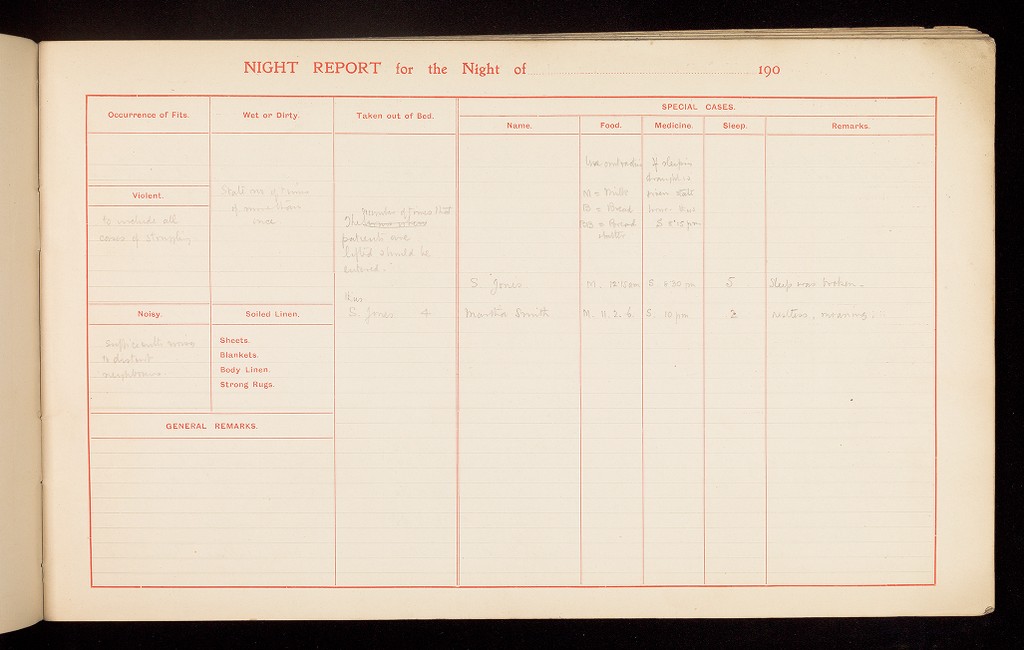 NIGHT REPORT for the Night of 190
Occurrence of Fits.
Wet or Dirty.
Taken out of Bed.
SPECIAL CASES.
Name.
Food.
Medicine.
Sleep.
Remarks.
Use
If sleeping
draught is
M = Milk
given state
B = Bread
hour thus
BB = Bread
S 8.15 pm
butter
State no of times
if more than
once
Violent.
to include all
cases of struggling
number of times that
The
patients are
lifted should be
entered."
S. Jones
M. 12.15 am
S. 6 30 pm
5
Sleep was broken.
thus
S. Jones 4
Martha Smith
M. 11. 2. 6.
S. 10 pm
2
restless, moaning.
Noisy.
Soiled Linen.
to disturb
neighbours.
Sheets.
Blankets.
Body Linen.
Strong Rugs.
GENERAL REMARKS.